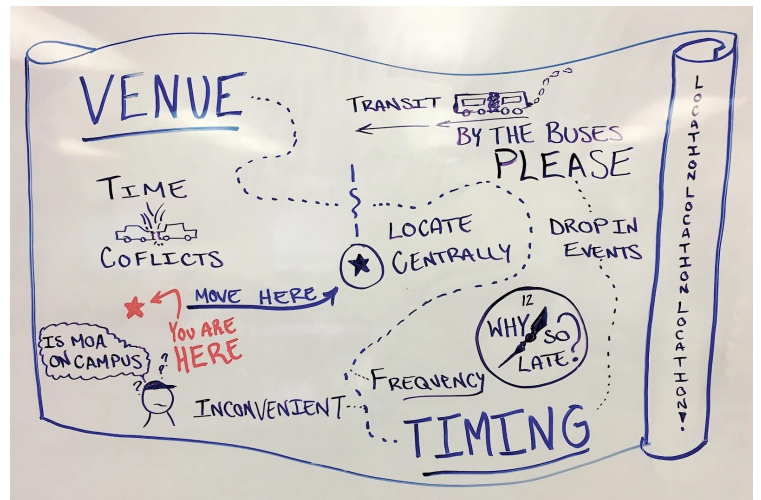 VENUE
TRANSIT
BY THE BUSES
PLEASE
TIME
COFLICTS
LOCATE
CENTRALLY
DROP IN
EVENTS
MOVE HERE
YOU ARE
HERE
IS MOA
ON CAMPUS
? ? ?
12
WHY SO
LATE?
FREQUENCY
INCONVENIENT
TIMING
LOCATION LOCATION LOCATION!